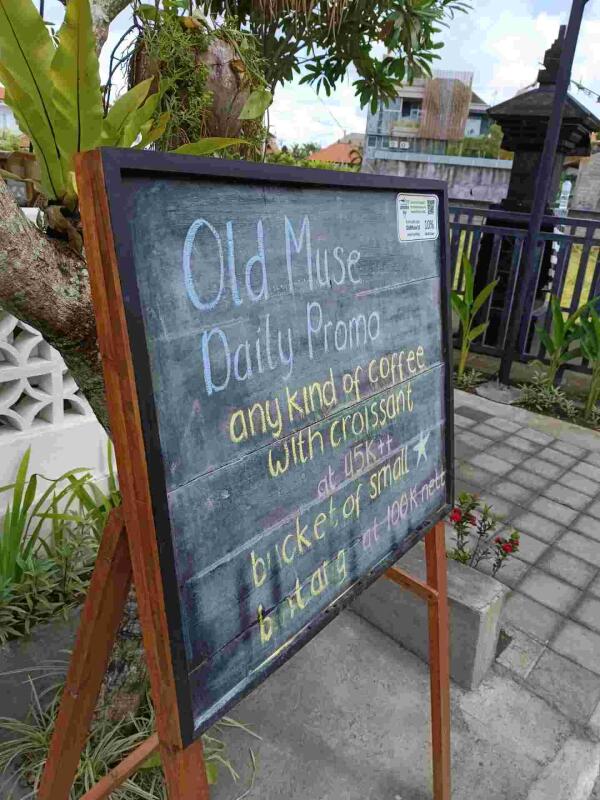 Old Muse
Daily Promo
any kind of coffee
with croissant
at 45K++
bucket of small
at 100K nett
10%